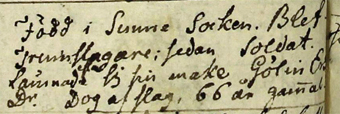 Född i Sunne Socken. Blef
Trumslagare; sedan Soldat.
Lämnade sin make Gölin
Dr. Dog af slag, 66 år gamal.